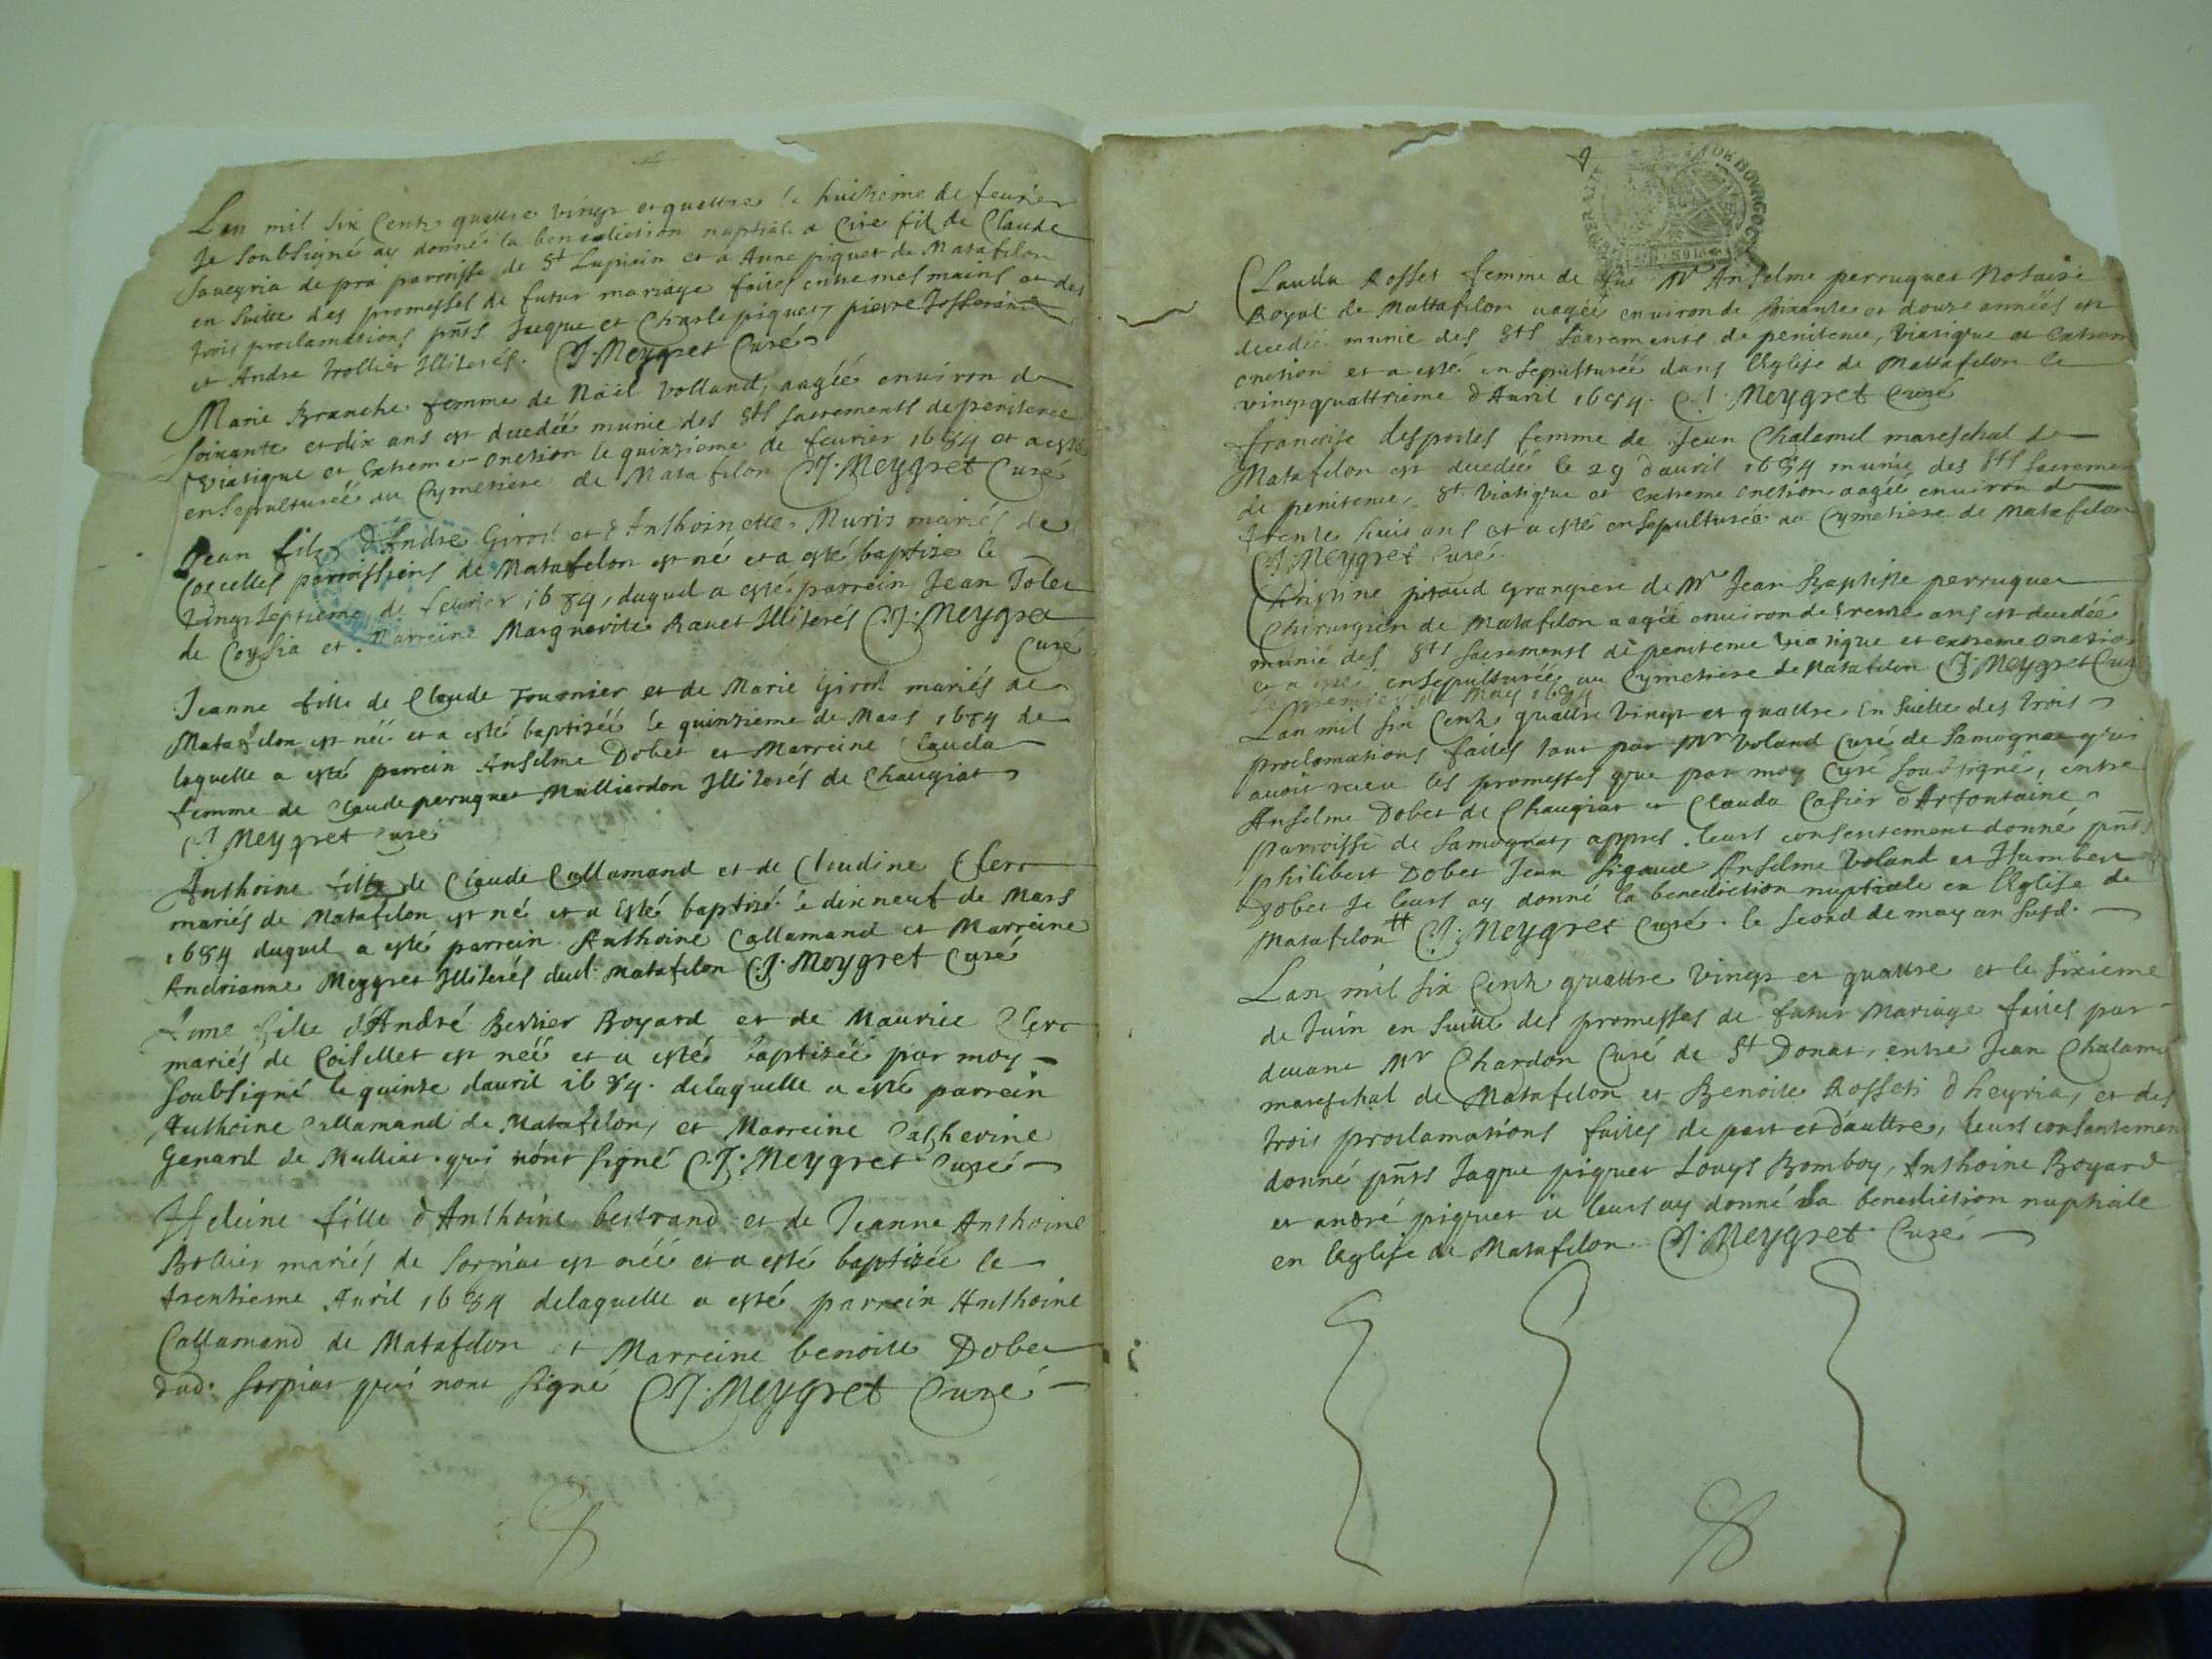 Lan mil six Centz quattre vingt et quattre le huictieme de feurier
Je soubsigné ay donné la benediction nuptiale a Cire fil de Claude
Saueyria de pra parroisse de St Lupicin et a Anne piquet de Matafelon
en suitte des promesses de futur mariage faites entre mes mains et des
trois proclamations pnts Jacque et Charle piquet, pierre Josserand
et Andre trollier Illiterés. C J. Meygret Curé
Marie Branche femme de Noël Volland, aagée enuiron de
soixante et dix ans est decedée munie des Sts sacrements de penitence
Viatique et Extreme-onction le quinzieme de feurier 1684 et a esté
ensepulturée au Cymetiere de Matafelon C J. Meygret Curé
Jean filz d'Andre Girod et d'Anthoinette Muris mariés de
Corcelles parroissiens de Matafelon est né et a esté baptize le
Vingt septieme de feurier 1684, duquel a esté parrein Jean
de Coysia et Marreine Marguerite Rauet Illiterés C J. Meygret
Curé
Jeanne fille de Claude Fournier et de Marie Girod mariés de
Matafelon est née et a esté baptizée le quinzieme de Mars 1684 de
laquelle a esté parrein Anselme Dobet et Marreine Clauda
femme de Claude perruquet Milliardon Illiterés de Chaugiat
C J Meygret Curé
Anthoine filz de Claude Callamand et de Claudine Clerc
mariés de Matafelon est né et a esté baptizé le dixneuf de Mars
1684 duquel a esté parrein Anthoine Callamand et Marreine
Andrianne Meygret Illiterés dud. Matafelon C J. Meygret Curé
fille d'André Bertier Boyard et de Maurice Clerc
mariés de Coisellet est née et a esté baptizée par moy
soubsigné le quinze dauril 1684. delaquelle a esté parrein
Anthoine Callamand de Matafelon, et Marreine Catherine
Genard de Mulliat. qui n'ont signé C. J. Meygret Curé
Heleine fille d'Anthoine bertrand et de Jeanne Anthoine
Bollier mariés de Sorpiat est née et a esté baptizée le
trentieme Auril 1684 delaquelle a esté parrein Anthoine
Callamand de Matafelon et Marreine benoitte Dobet
dud. Sorpiat qui nont signé C J. Meygret Curé
Clauda Rosset femme de feu Mr Anselme perruquet Notaire
Royal de Mattafelon aagée enuiron de soixante et douze années est
decedée munie des Sts Sacrements de penitence, Viatique et Extrem
onction et a esté ensepulturée dans l'Eglise de Mattafelon le
vingtquattrieme d'Auril 1684. C J. Meygret Curé
francoise desportes femme de Jean Chalamel mareschal de
Matafelon est decedée le 29 dauril 1684 munie des Sts Sacremen
de penitence, St. Viatique et Extreme onction aagée enuiron de
trente huit ans et a esté ensepulturée au Cymetiere de Matafelon
C J. Meygret Curé.
Christine pitoud grangiere de Mr Jean Baptiste perruquet
Chirurgien de Matafelon aagée enuiron de trente ans est decedée
munie des Sts Sacrements de penitence Viatique et extreme onction
et a esté ensepulturée au Cymetiere de Matafelon C J. Meygret Curé
le premier May 1684
Lan mil six Centz quattre Vingt et quattre En Suitte des trois
proclamations faites tant par Mr Voland Curé de Samognat qui
auoit receu les promesses que par moy Curé soubsigné, entre
Anselme Dobet de Chaugiat et Clauda Cafier d'Arfontaine
parroisse de Samognat, appres leurs consentement donné pnts
philibert Dobet Jean Sigaud Anselme Voland et Humbert
Dobet Je leurs ay donné la benediction nuptiale en l'Eglise de
Matafelon C J. Meygret Curé. le second de may an susd.
Lan mil six Centz quattre Vingt et quattre et le sixieme
de Juin en Suitte des promesses de futur Mariage faites par
deuant Mr Chardon Curé de St Donat, entre Jean Chalamel
mareschal de Matafelon et Benoite Rosset d'heyria, et des
trois proclamations faites de part et d'aultre, leurs consentemen
donné pnts Jaque piquet Louys Bomboy, Anthoine Boyard
et andré piquet ie leurs ay donné la benediction nuptiale
en l'Eglise de Matafelon. C J. Meygret Curé